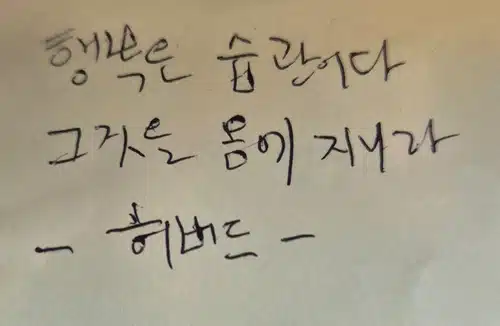 행복은 습관이다
그것을 몸에 지니라
- 허버드 -